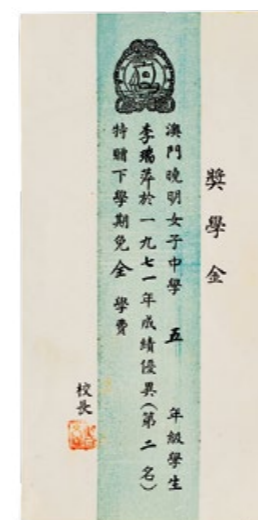 獎學金
澳門曉明女子中學 五 年級學生
李瑞萍於一九七一年成績優異(第二名)
特贈下學期免全學費
校長